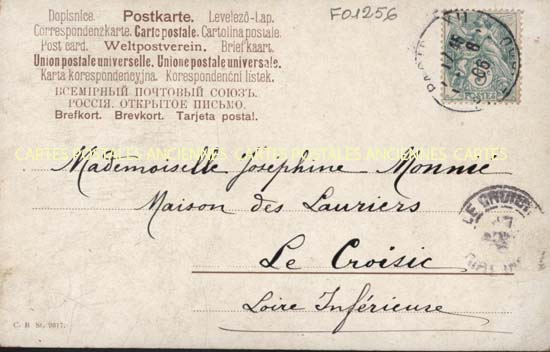 Dopisnice. Postkarte. Levelező-Lap.
Correspondenzkarte. Carte postale. Cartolina postale.
Post card. Weltpostverein. Brefkaart.
Union postale universelle. Unione postale universale.
Karta korespondencyjna. Korespondenční lístek.
ВСЕМІРНЫЙ ПОЧТОВЫЙ СОЮЗЪ.
РОССІЯ. ОТКРЫТОЕ ПИСЬМО.
Brefkort. Brevkort. Tarjeta postal.
FO1256
POSTES
CARTES POSTALES ANCIENNES CARTES POSTALES ANCIENNES CARTES
Mademoiselle Josephine Monnie
Maison des Lauriers
LE CROISIC
Le Croisic
Loire Inférieure
C. B St. 2017.